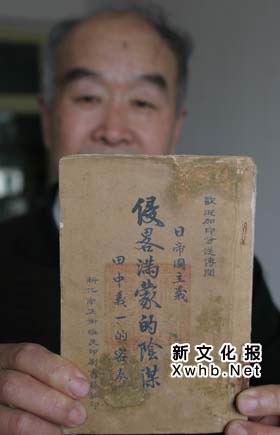 歡迎加印分送傳閱
日帝國主義
侵畧滿蒙的陰謀
田中義一的密奏
新文化报
Xwhb.Net